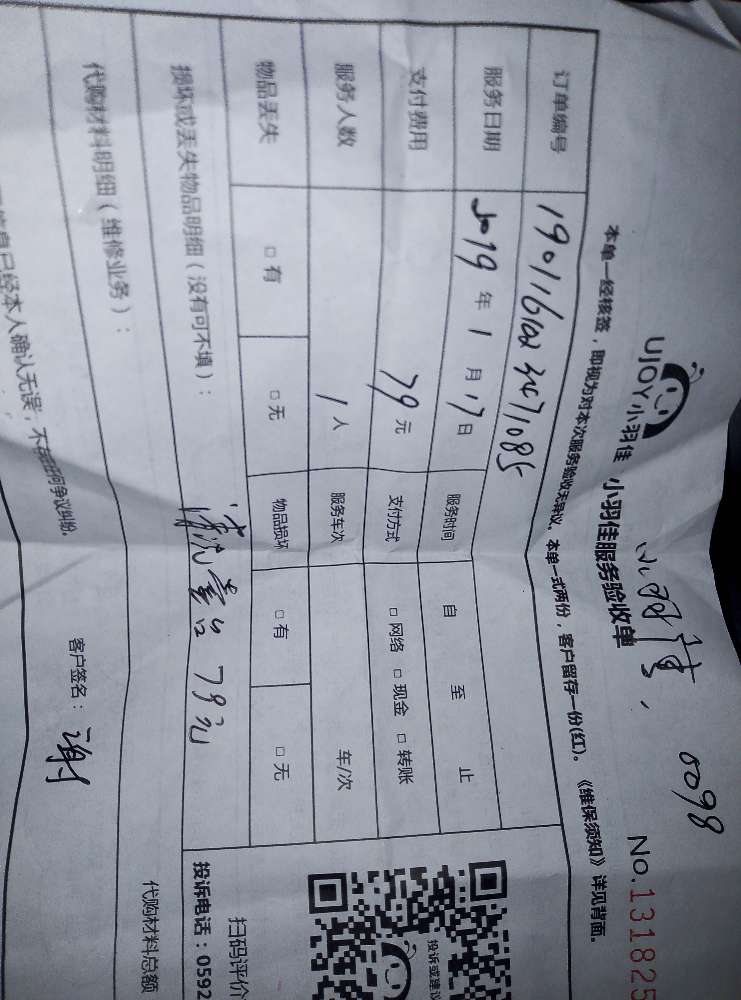 UJOY小羽佳 小羽佳服务验收单
5098
No.131825
本单一经核签，即视为对本次服务验收无异议。本单一式两份，客户留存一份(红)。《维保须知》详见背面。
订单编号
服务日期 2019 年 1 月 17 日 服务时间 自 至 止
支付费用 79 元 支付方式 □ 网络 □ 现金 □ 转账
服务人数 1 人 服务车次 车/次
物品丢失 □ 有 □ 无 物品损坏 □ 有 □ 无
损坏或丢失物品明细（没有可不填）：
79元
代购材料明细（维修业务）：
代购材料总额
投诉或建议
扫码评价
投诉电话：0592
信息已经本人确认无误，不存在任何争议纠纷。
客户签名： 谢